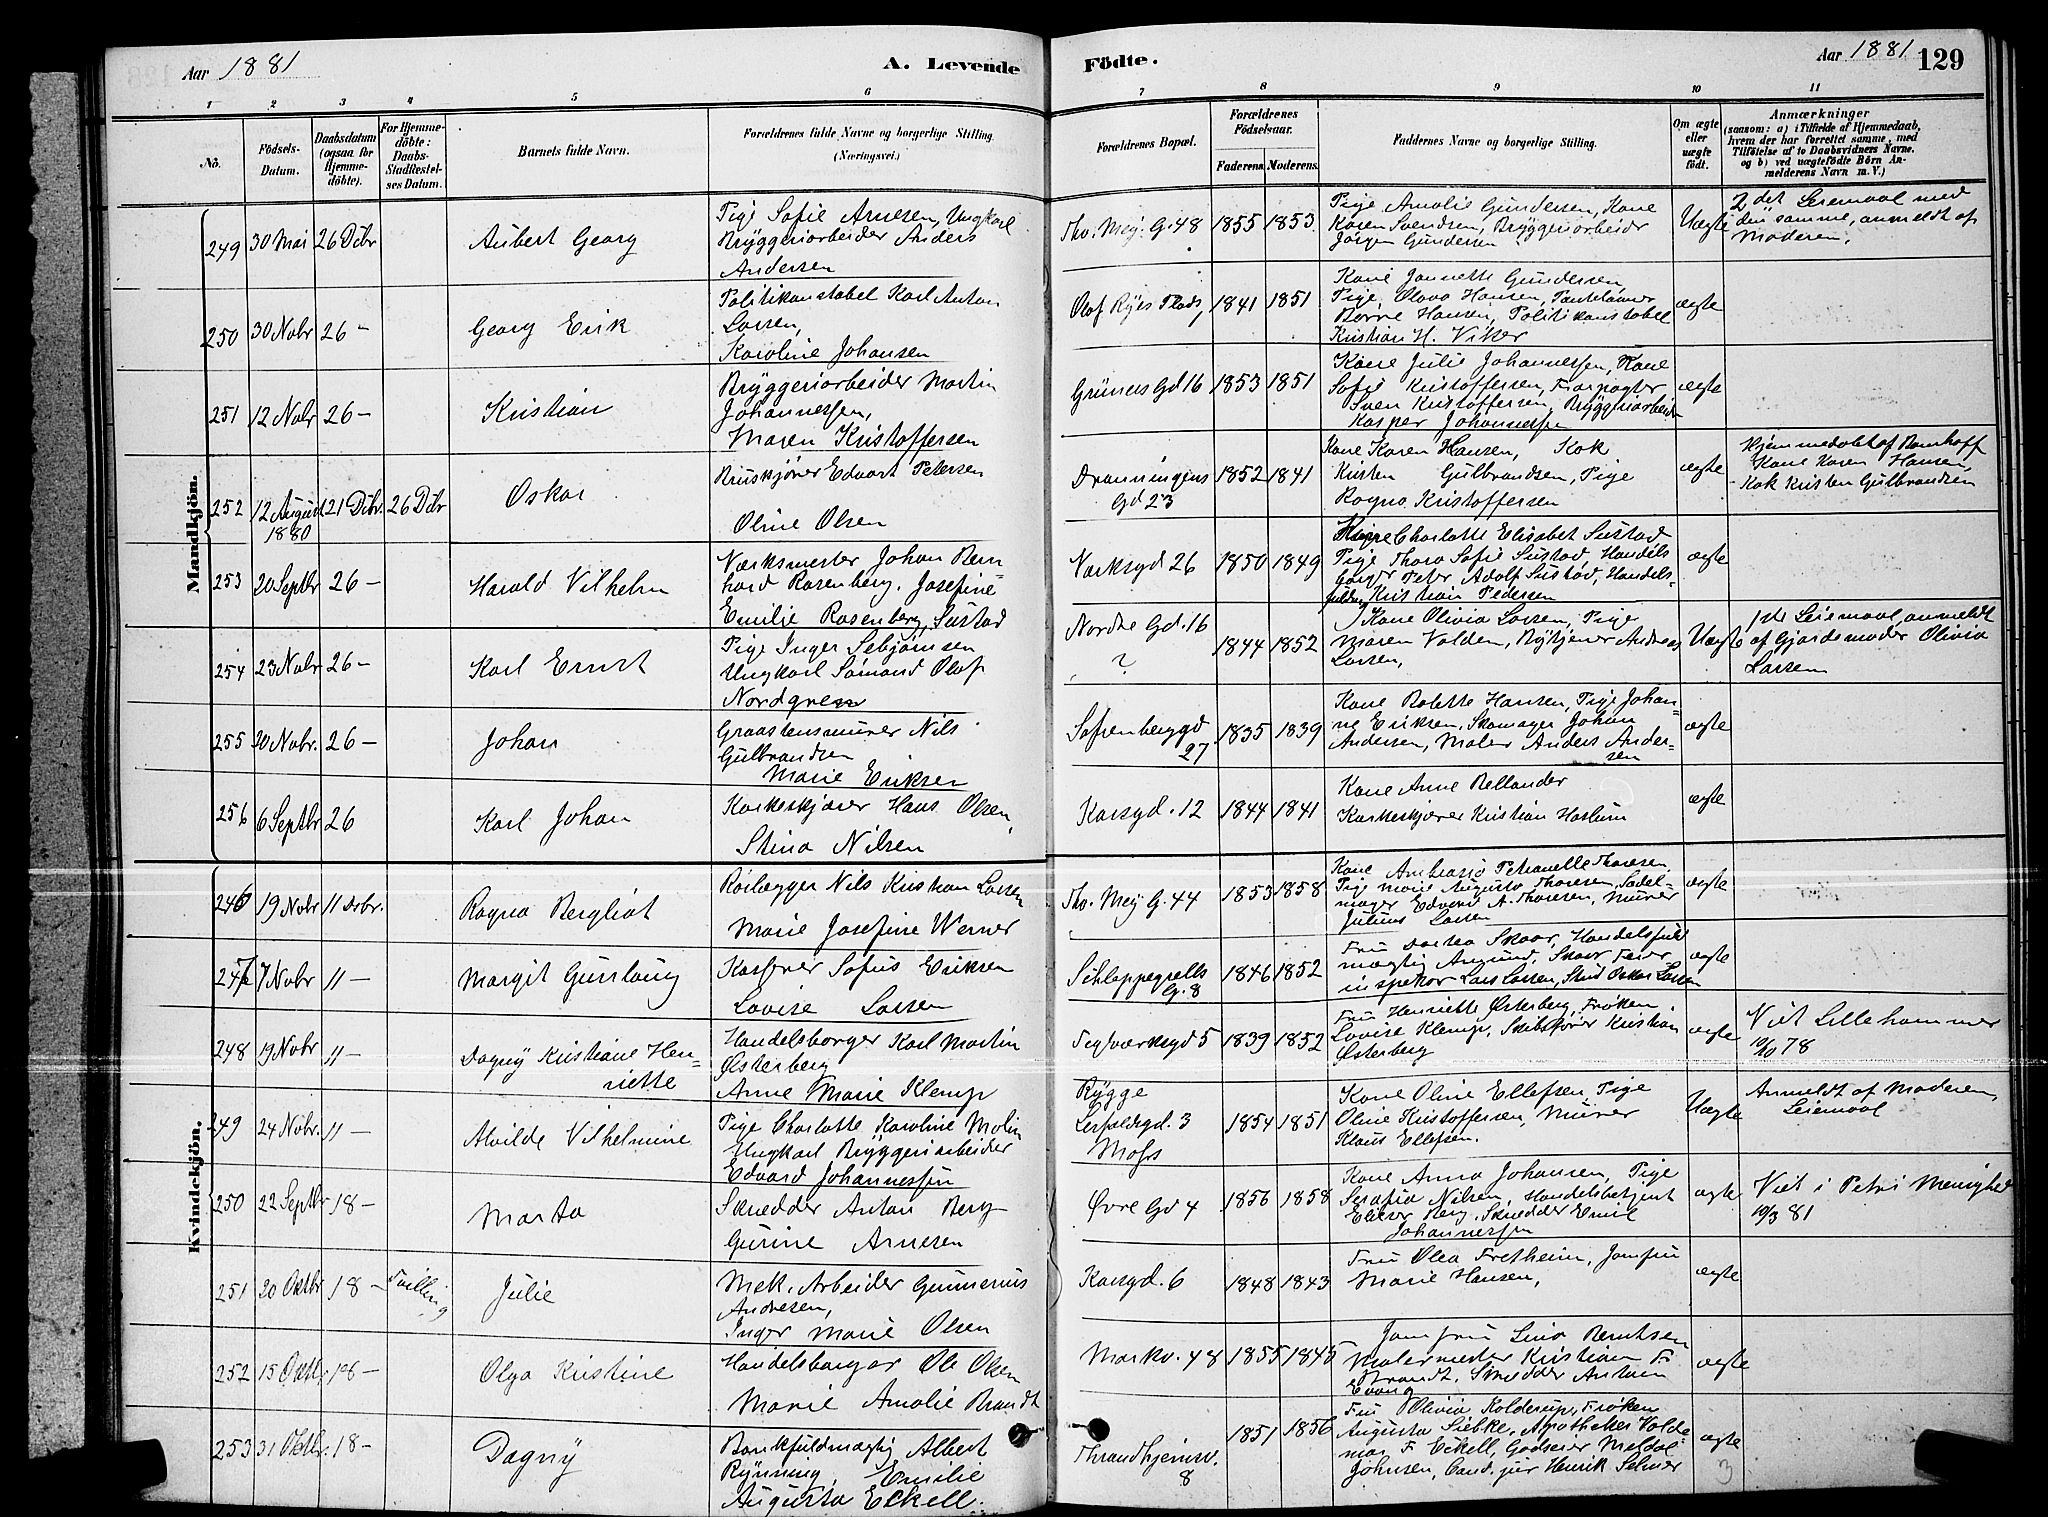 Aar 1881
A. Levende
Födte.
Aar 1881
129
1 2 3 4 5 6
7 8 9 10 11
Nô.
Födsels-Datum.
Daabsdatum (ogsaa for Hjemmedöbte).
For Hjemmedöbte: Daabs-Stadfæstelses Datum.
Barnets fulde Navn.
Forældrenes fulde Navne og borgerlige Stilling.
(Næringsvei.)
Forældrenes Bopæl.
Forældrenes Födselsaar.
Faderens. Moderens.
Faddernes Navne og borgerlige Stilling.
Om ægte eller uægte født.
Anmærkninger
(saasom: a) i Tilfælde af Hjemmedaab, hvem der har forrettet samme, med Tilföielse af to Daabsvidners Navne, og b) ved uægtefödte Börn Anmelderens Navn m. V.)
Mandkjön.
249 30 Mai 26 Dcbr Aubert Georg
Pige Sofie Arnesen, Ungkarl
Bryggeriarbeider Anders
Andersen
Thv. Mey. G. 48 1855 1853
Pige Amalie Gundersen, Kone
Karen Svendsen, Bryggeriarbeider
Jørgen Gundersen
Uægte
2det Leiemaal med
den samme, anmeldt af
Moderen.
250 30 Nobr 26 – Georg Erik
Politikonstabel Karl Anton
Larsen,
Karoline Johansen
Olaf Ryes Plads, 1841 1851
Kone Jannette Gundersen,
Pige Olava Hansen,
Hansen, Politikonstabel
Kristian H. Viker
ægte
251 12 Nobr 26 – Kristian
Bryggeriarbeider Martin
Johannessen,
Maren Kristoffersen
Grüners Gd 16 1853 1851
Kone Julie Johannessen, Kone
Sofie Kristoffersen, Forpagter
Sven Kristoffersen, Bryggeriarbeider
Kasper Johannessen
ægte
252 12 August 1880 21 Dcbr. 26 Dcbr Oskar
Bruskjører Edvart Petersen
Oline Olsen
Dronningens
Gd 23 1852 1841
Kone Karen Hansen, Kok
Kristen Gulbrandsen, Pige
Ragna Kristoffersen
ægte
Hjemmedøbt af
Kone Karen Hansen,
Kok Kristen Gulbrandsen
253 20 Septbr 26 – Harald Vilhelm
Værksmester Johan Bern
hard Rosenberg. Josefine
Emilie Rosenberg, Sustad
Værksgd 26 1850 1849
Charlotte Elisabet Sustad
Pige Thora Sofie Sustad, Handels
borger Peter Adolf Sustad, Handels-
fuldm Kristian Pedersen
ægte
254 23 Nobr 26 – Karl Ernst
Pige Inger Sebjørnsen
Ungkarl Sømand Olaf
Nordgren
Nordre Gd. 16
? 1844 1852
Kone Olivia Larsen, Pige
Maren Volden, Andreas
Larsen,
Uægte
1ste Leiemaal, anmeldt
af Gjordemoder Olivia
Larsen
255 20 Nobr. 26 – Johan
Graastensmurer Nils
Gulbrandsen
Marie Eriksen
Sofienberggd
27 1835 1839
Kone Bolette Hansen, Pige Johan-
ne Eriksen, Skomager Johan
Andersen, Maler Anders Ander-
sen
ægte
256 6 Septbr 26 Karl Johan
Korkeskjærer Hans Olsen,
Stina Nilsen
Korsgd. 12 1844 1841
Kone Anne Bellander
Korkeskjærer Kristian Haslum
ægte
Kvindekjön.
246 19 Nobr 11 Dcbr. Ragna Bergliot
Rørlægger Nils Kristian Larsen
Marie Josefine Werner
Thv. Mey. G. 44 1853 1858
Kone Petronelle Thoresen,
Pige Marie Augusta Thoresen, Sadel-
mager Edvard A. Thoresen, Murer
Julius Larsen
ægte
247 7 Nobr 11 – Margit Gunlaug
Sofus Eriksen
Lovise Larsen
Schleppegrells
G. 8 1846 1852
Fru Dortea Skaar, Handelsfuld
mægtig Amund Skaar,
inspektør Lars Larsen, Stud Oskar Larsen
ægte
248 19 Nobr 11 – Dagny Kristiane Hen-
riette
Handelsborger Karl Martin
Østerberg
Anne Marie Klemp
Teglværksgd 5 1839 1852
Fru Henriette Østerberg, Frøken
Lovise Klemp, Skibsfører Kristian
Østerberg
ægte
Viet Lillehammer
10/10 78
249 24 Nobr. 11 – Alvilde Vilhelmine
Pige Charlotte Karoline Molin
Ungkarl Bryggeriarbeider
Edvard Johannessen
Rygge
Lerfaldsgd. 3
Moss 1854 1851
Kone Oline Ellefsen Pige
Oline Kristoffersen, Murer
Klaus Ellefsen.
Uægte
Anmeldt af Moderen,
Leiemaal
250 22 Septbr 18 – Marta
Skrædder Anton Berg
Gurine Arnesen
Øvre Gd 4 1856 1858
Kone Anna Johansen, Pige
Serafia Nilsen, Handelsbetjent
Elieser Berg, Skrædder Emil
Johannessen
ægte
Viet i Petri Menighed
10/3 81
251 20 Oktbr 18 – Tvilling Julie
Mek. Arbeider Gunnerius
Andresen,
Inger Marie Olsen
Korsgd. 6 1848 1843
Fru Olea Fretheim, Jomfru
Marie Hansen,
ægte
252 15 Oktbr 18 – Olga Kristine
Handelsborger Ole Olsen
Marie Amalie Brandt
Markv. 48 1855 1845
Jomfru Lina Berntsen
Malermester Kristian F.
Brandt, Skrædder Anton
Evang
ægte
253 31 Oktbr. 18 – Dagny
Bankfuldmægtig Albert
Rynning, Emilie
Augusta Eckell.
Thrandhjemsv.
8 1851 1856
Fru Olivia Kolderup, Frøken
Augusta Siebke, Apotheker Valde
mar F. Eckell, Godseier Meldal
Johnsen, Cand. jur Henrik Selmer
ægte
3